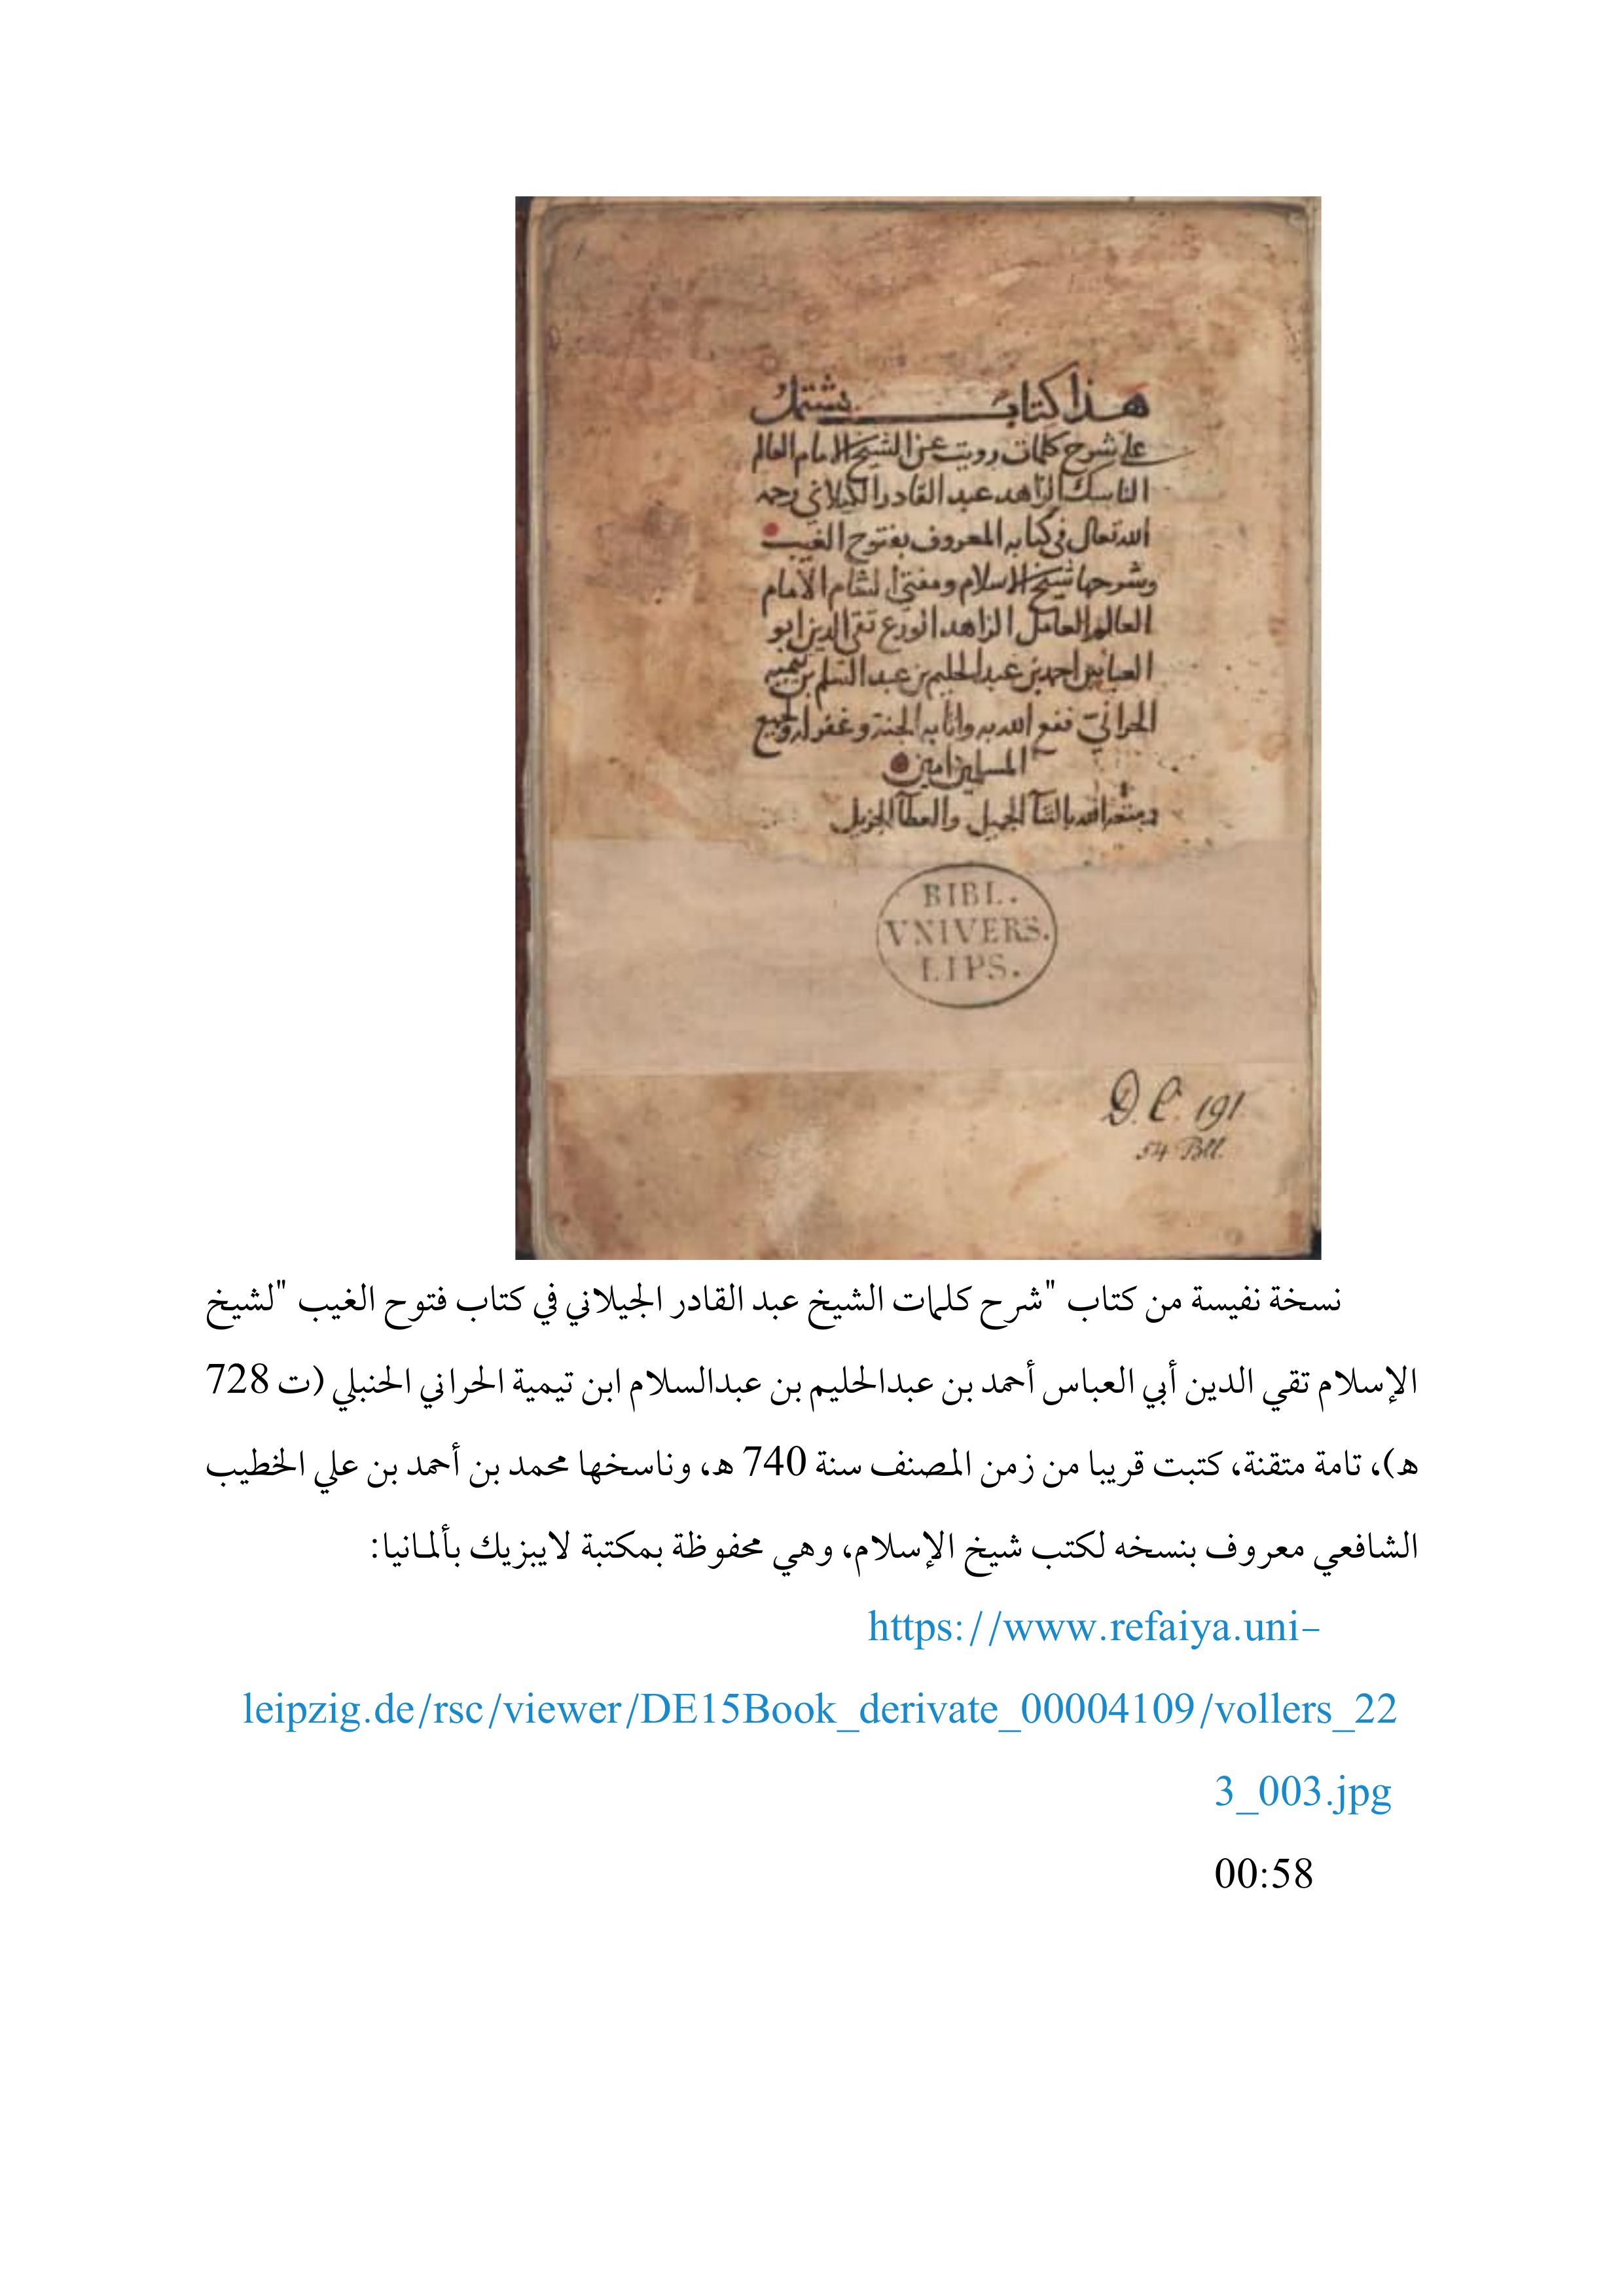 هذا كتاب يشتمل
على شرح كلمات رويت عن الشيخ الامام العالم
الناسك الزاهد عبد القادر الكيلاني رحمه
الله تعالى في كتابه المعروف بفتوح الغيب
وشرحها شيخ الاسلام ومفتي الشام الامام
العالم العامل الزاهد الورع تقي الدين ابو
العباس احمد بن عبد الحليم بن عبد السلم بن تيميه
الحراني نفع الله به واثابه الجنة وغفر له ولجميع
المسلمين امين
الله بالثنآ الجميل والعطآ الجزيل
BIBL.
VNIVERS.
LIPS.
D. C. 191
54 Bll.
نسخة نفيسة من كتاب "شرح كلمات الشيخ عبد القادر الجيلاني في كتاب فتوح الغيب "لشيخ
الإسلام تقي الدين أبي العباس أحمد بن عبدالحليم بن عبدالسلام ابن تيمية الحراني الحنبلي (ت 728
هـ)، تامة متقنة، كتبت قريبا من زمن المصنف سنة 740 هـ، وناسخها محمد بن أحمد بن علي الخطيب
الشافعي معروف بنسخه لكتب شيخ الإسلام، وهي محفوظة بمكتبة لايبزيك بألمانيا:
https://www.refaiya.uni-
leipzig.de/rsc/viewer/DE15Book_derivate_00004109/vollers_22
3_003.jpg
00:58